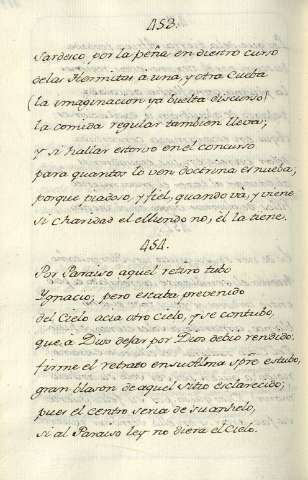 453.
Sardesco, por la peña en diestro curso
de las Hermitas a una, y otra Cueba
(la ymaginacion ya buelta discurso)
la comida regular tambien lleva;
y si hallar estorvo en el concurso
para quantos lo ven doctrina es nueba;
porque piadoso, y fiel, quando và, y viene
si charidad el Mundo no, èl la tiene.
454.
Por Paraiso aquel retiro tubo
Ygnacio; pero estaba prevenido
del Cielo acia otro cielo, y se contubo,
que a Dios dejar por Dios debio rendido:
firme el retrato en su Alma spre estubo,
gran blason de aquel sitio esclarecido;
pues el centro seria de su anhelo,
si al Paraiso ley no diera el Cielo.